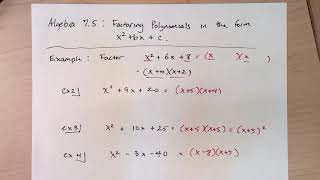 Algebra 7.5 : Factoring Polynomials in the form
x² + bx + c.
Example : Factor x² + 6x + 8 = (x )(x )
= (x+4)(x+2)
Ex2] x² + 9x + 20 = (x+5)(x+4)
Ex3] x² + 10x + 25 = (x+5)(x+5) = (x+5)²
Ex4] x² - 3x - 40 = (x-8)(x+5)